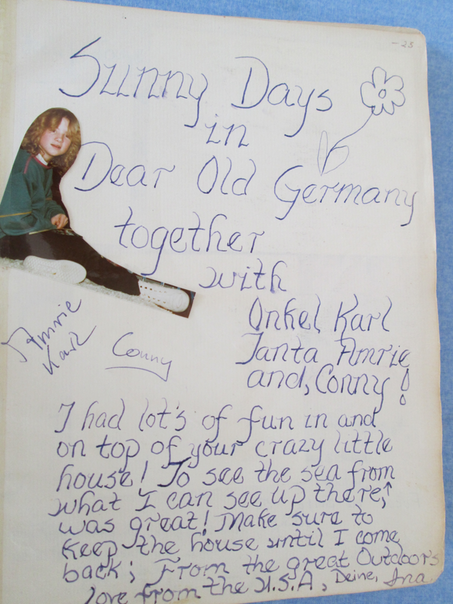 - 23
Sunny Days
in
Dear Old Germany
together
with
Onkel Karl
Tanta Amrie
and, Conny!
Amrie
Karl
Conny
I had lot's of fun in and
on top of your crazy little
house! To see the sea from
what I can see up there,
was great! Make sure to
keep the house until I come
back; From the great Outdoors
love from the U.S.A, Deine, Ina